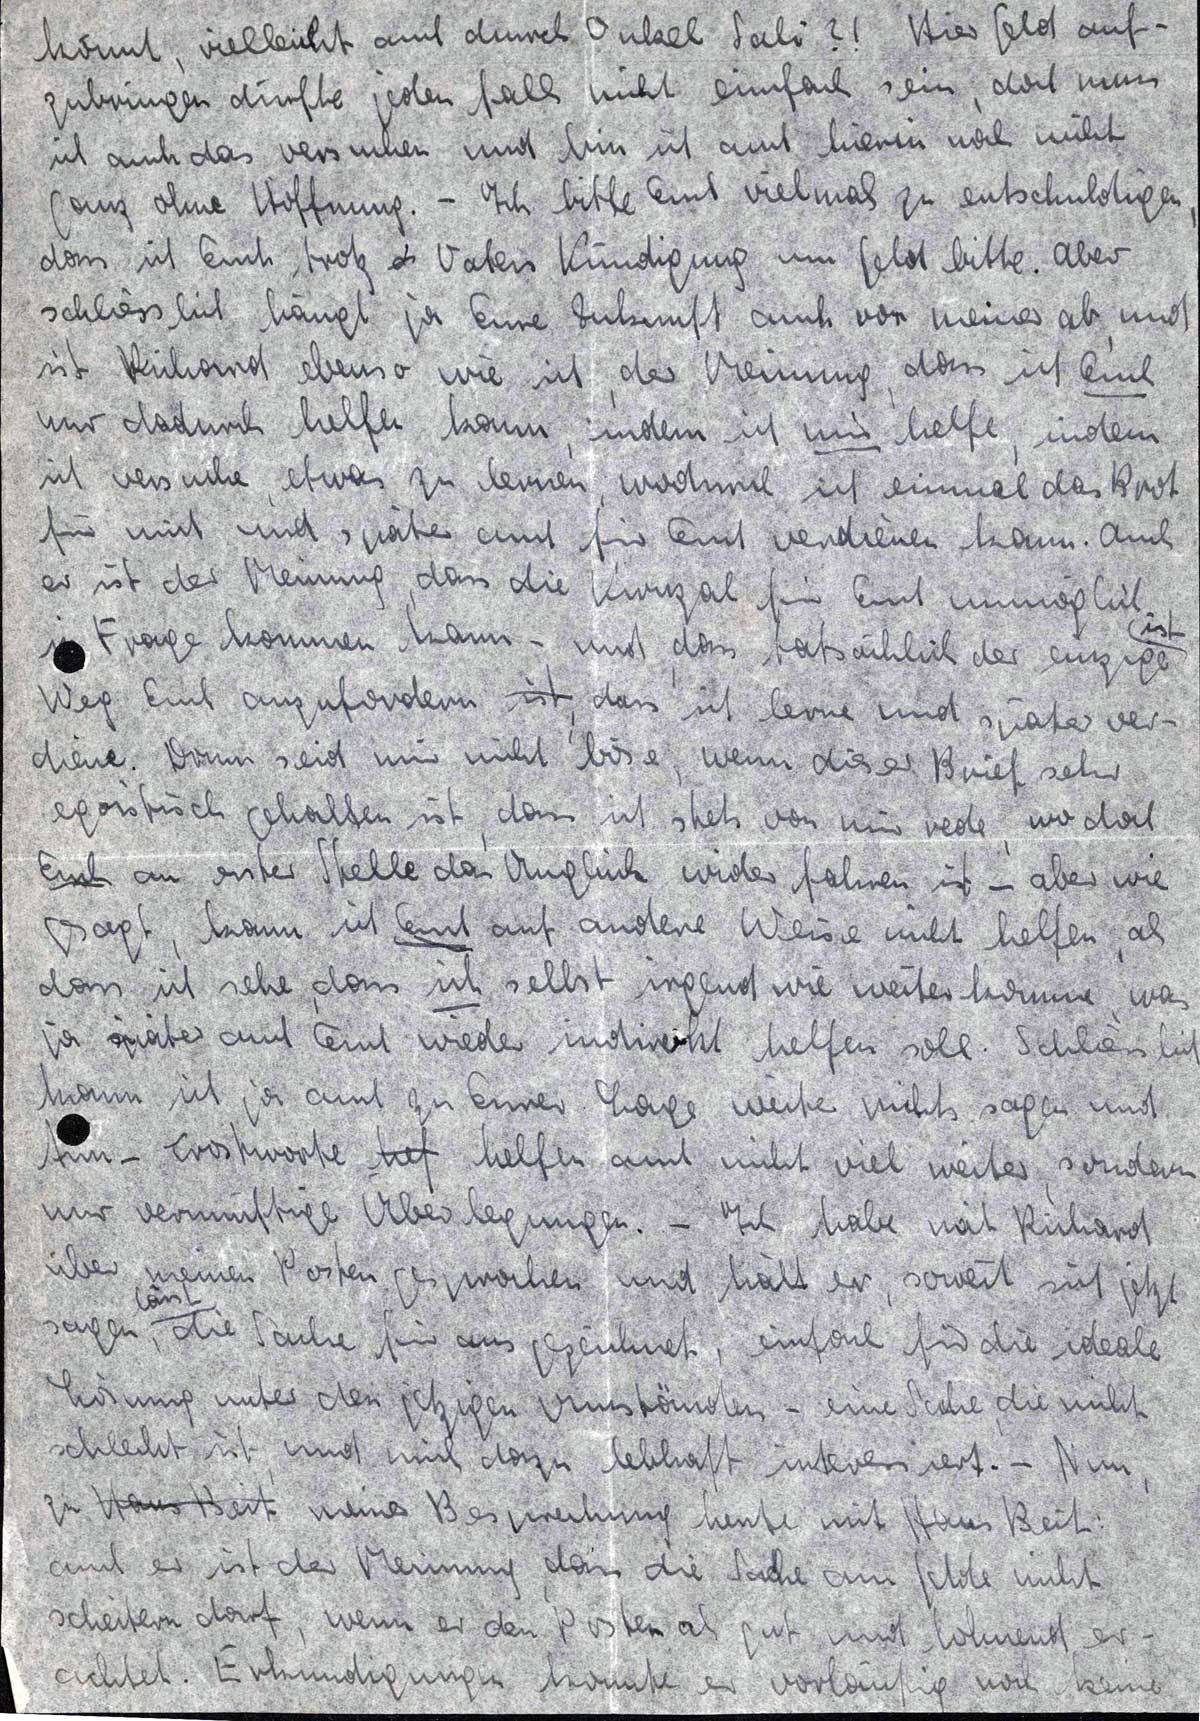 könnt, vielleicht auch durch Onkel Sali?! Hier Geld auf-
zubringen dürfte jeden falls nicht einfach sein, doch muss
ich auch das versuchen und bin ich auch hierin noch nicht
ganz ohne Hoffnung. - Ich bitte Euch vielmals zu entschuldigen,
dass ich Euch trotz Vaters Kündigung um Geld bitte. Aber
schliesslich hängt ja Eure Zukunft auch von meiner ab, und
ist Richard ebenso wie ich der Meinung, dass ich Euch
nur dadurch helfen kann, indem ich mir helfe, indem
ich versuche, etwas zu lernen, wodurch ich einmal das Brot
für mich und später auch für Euch verdienen kann. Auch
er ist der Meinung, dass die für Euch unmöglich
in Frage kommen kann - und dass tatsächlich der einzige ist
Weg Euch anzufordern ist, dass ich lerne und später ver-
diene. Drum seid mir nicht böse, wenn dieser Brief sehr
egoistisch gehalten ist, dass ich stets von mir rede, wo doch
Euch an erster Stelle das Unglück wider fahren ist - aber wie
gesagt, kann ich Euch auf andere Weise nicht helfen, als
dass ich sehe, dass ich selbst irgend wie weiter komme, was
ja später auch Euch wieder indirekt helfen soll. Schliesslich
kann ich ja auch zu Eurer Lage weiter nichts sagen und
tun - Trostworte hef helfen auch nicht viel weiter, sondern
nur vernünftige Überlegungen. - Ich habe mit Richard
über meinen Posten gesprochen und hält er, soweit sich jetzt
sagen lässt, die Sache für ausgezeichnet, einfach für die ideale
Lösung unter den jetzigen Umständen - eine Sache, die nicht
schlecht ist und mich dazu lebhaft interessiert. - Nun,
zu Hans Beit meiner Besprechung heute mit Hans Beit:
auch er ist der Meinung, dass die Sache am Gelde nicht
scheitern darf, wenn er den Posten als gut und lohnend er-
achtet. Erkundigungen konnte er vorläufig noch keine